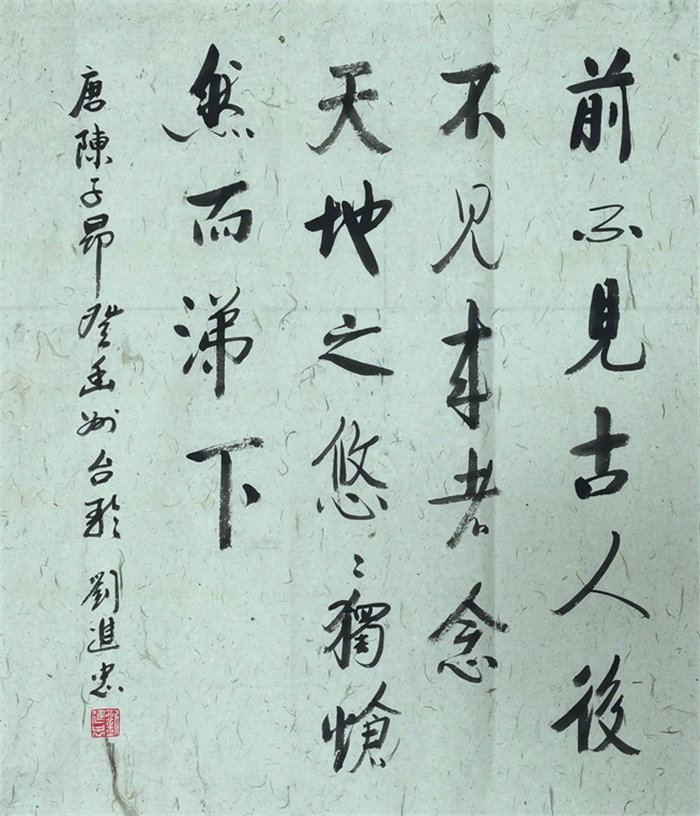 前不見古人後
不见来者念
天地之悠〻獨愴
然而涕下
唐陳子昂登幽州台歌 劉進忠